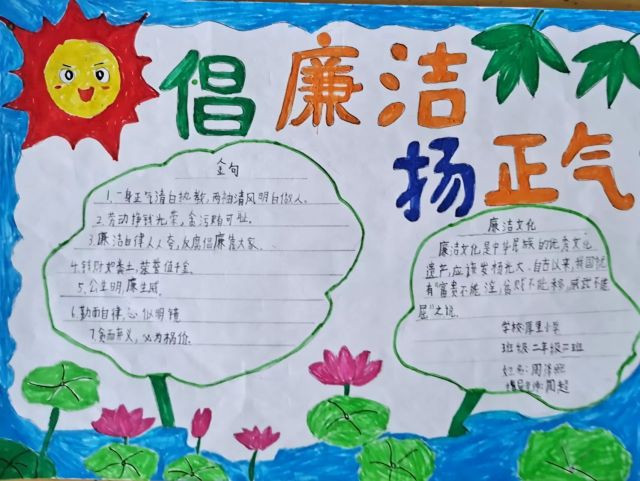 倡廉洁
扬正气
金句
1.一身正气清白执教,两袖清风明白做人。
2.劳动挣钱光荣,贪污贿可耻。
3.廉洁自律人人夸,反腐倡廉靠大家。
4.钱财如粪土,荣誉值千金。
5.公生明,廉生威。
6.勤而自律,心似明镜
7.贪而弃义,必为祸倚。
廉洁文化
廉洁文化是中华民族的优秀文化
遗产,应该发扬光大。自古以来,我国就
有“富贵不能淫,贫贱不能移,威武不能
屈”之说。
学校:厚里小学
班级:二年级二班
姓名:周泽
指导老师:周超